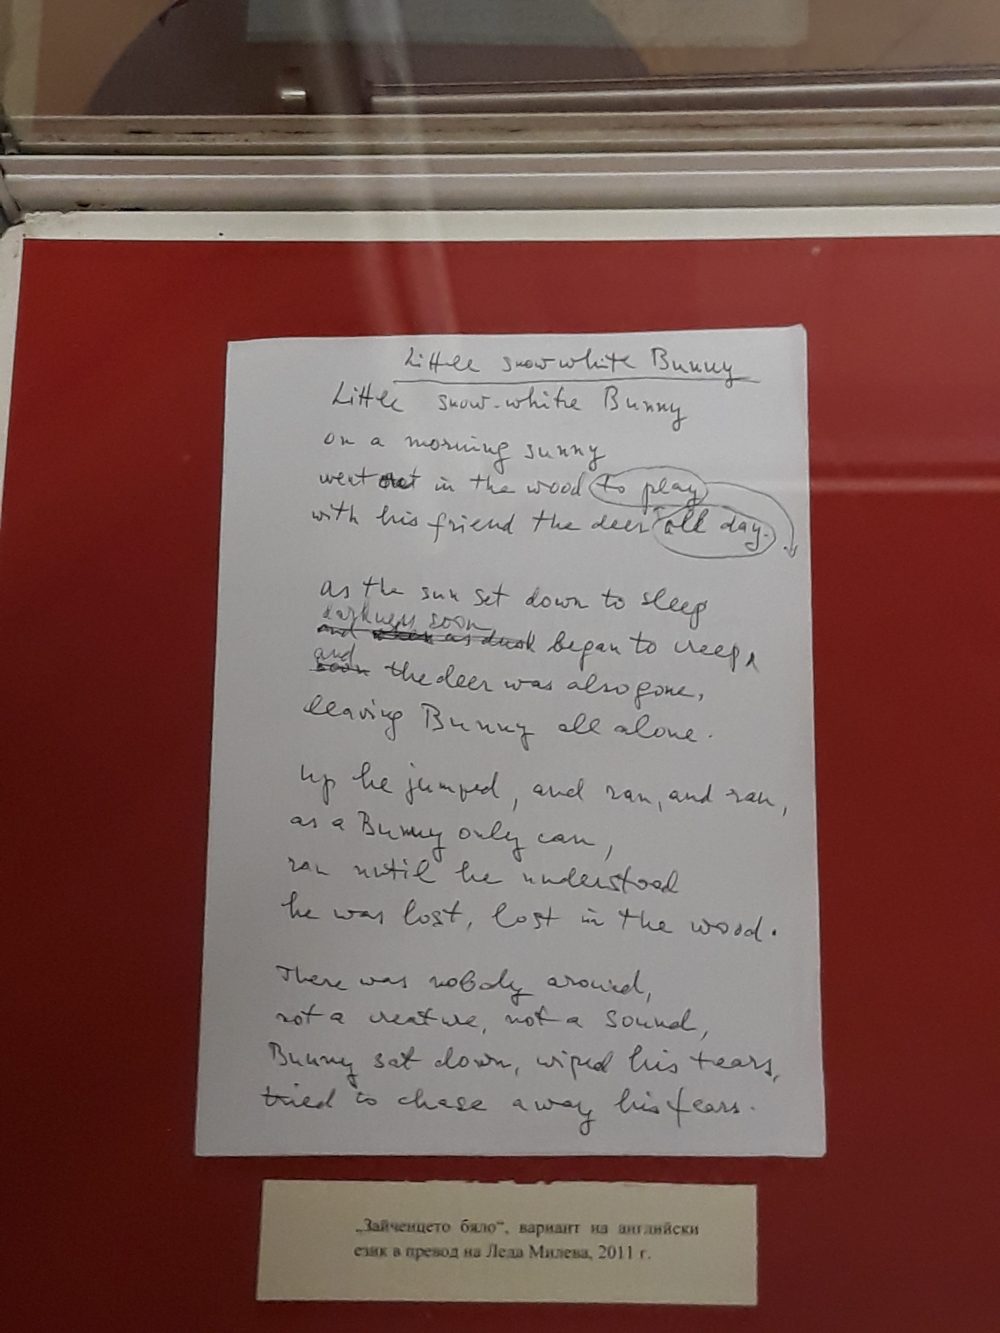 Little snowwhite Bunny
Little snow-white Bunny
on a morning sunny
went out in the wood to play
with his friend the deer all day.
as the sun set down to sleep
darkness soon
and when as dusk began to creep,
and
soon the deer was also gone,
leaving Bunny all alone.
Up he jumped, and ran, and ran,
as a Bunny only can,
ran until he understood
he was lost, lost in the wood.
There was nobody around,
not a creature, not a sound,
Bunny sat down, wiped his tears,
tried to chase away his fears.
„Зайченцето бяло“, вариант на английски
език в превод на Леда Милева, 2011 г.